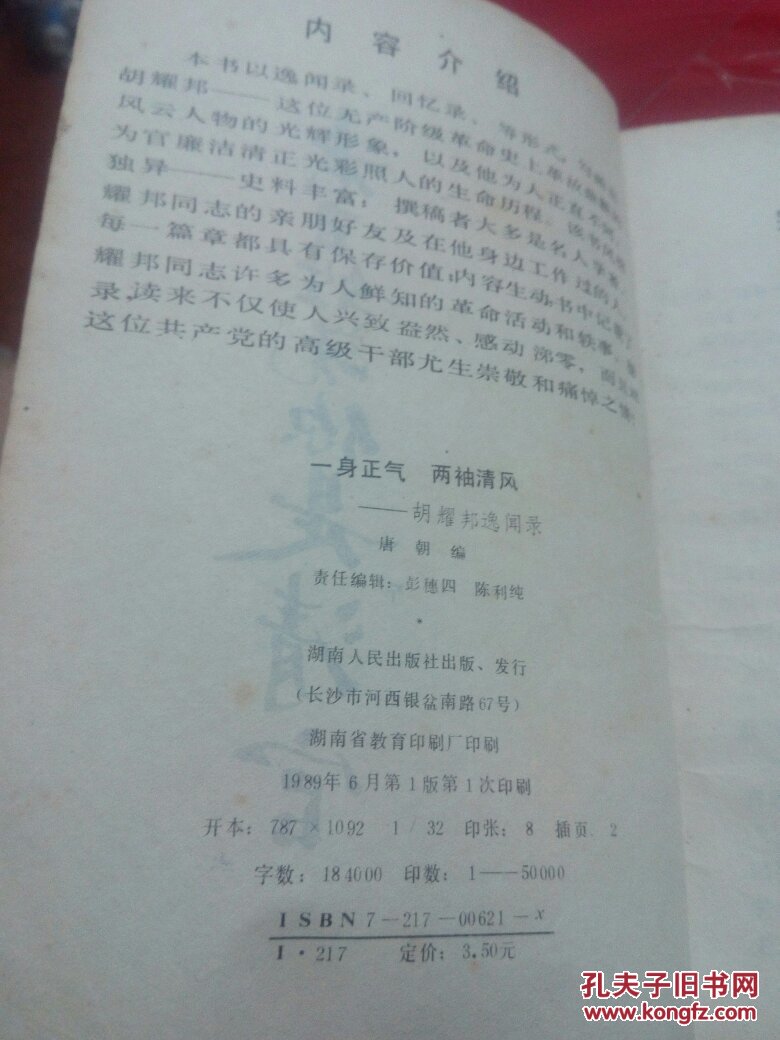 内容介绍
本书以逸闻录、回忆录、等形式,
胡耀邦——这位无产阶级革命史上
风云人物的光辉形象,以及他为人正直
为官廉洁清正光彩照人的生命历程。该书
独异——史料丰富;撰稿者大多是名人学者
耀邦同志的亲朋好友及在他身边工作过的人
每一篇章都具有保存价值;内容生动书中记
耀邦同志许多为人鲜知的革命活动和轶事,
录,读来不仅使人兴致盎然、感动涕零,而
这位共产党的高级干部尤生崇敬和痛悼之
一身正气 两袖清风
——胡耀邦逸闻录
唐朝编
责任编辑:彭穗四 陈利纯
*
湖南人民出版社出版、发行
(长沙市河西银盆南路67号)
湖南省教育印刷厂印刷
1989年6月第1版第1次印刷
开本:787×1092 1/32 印张:8 插页 2
字数:184000 印数:1——50000
ISBN7-217-00621-x
I·217 定价:3.50元
孔夫子旧书网
www.kongfz.com